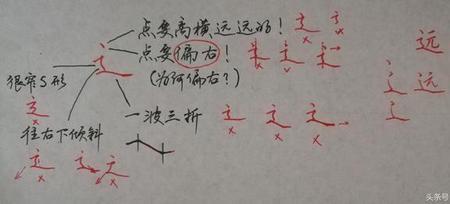 点要离横远远的！
点要偏右！
(为何偏右？)
很窄S形
一波三折
往右下倾斜
辶
远
远
头条号